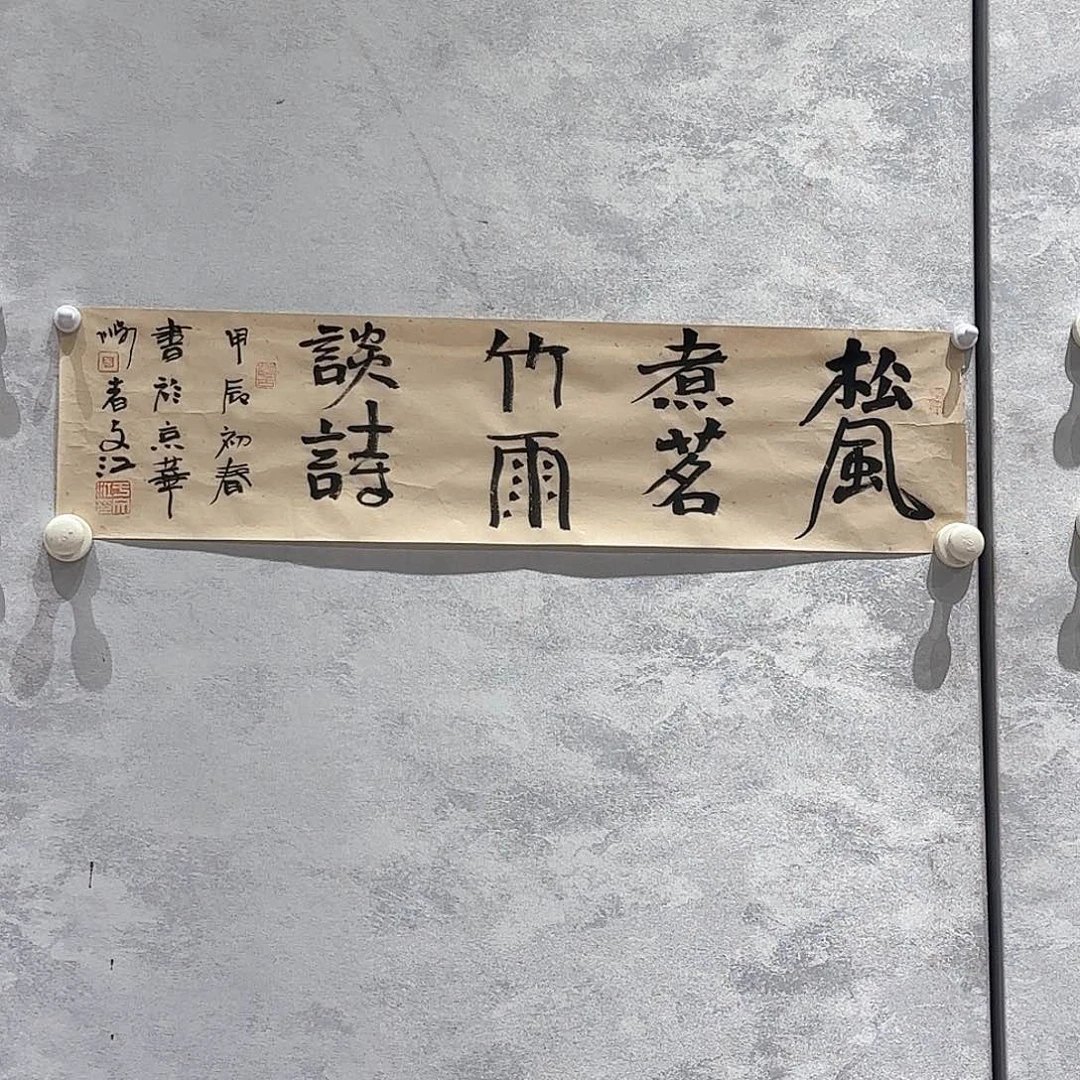 松風
煮茗
竹雨
談詩
甲辰初春
書於京華
者文江